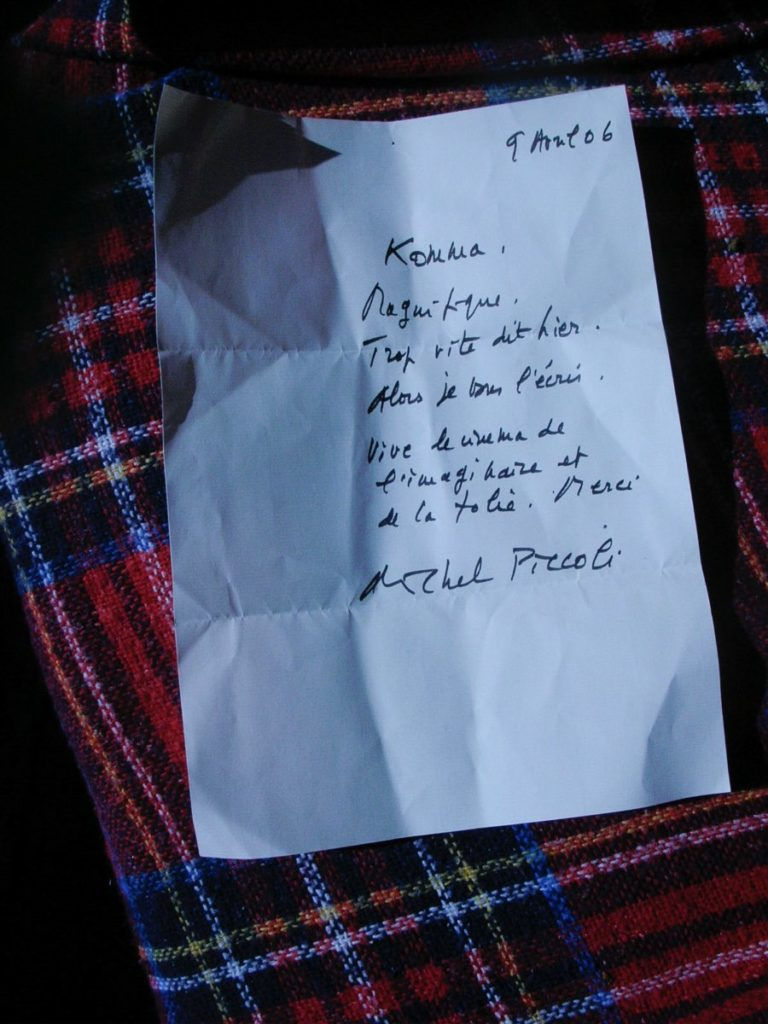 9 Avril 06
Komma.
Magnifique.
Trop vite dit hier.
Alors je vous l'écris.
Vive le cinema de
l'imaginaire et
de la folie. Merci
Michel Piccoli